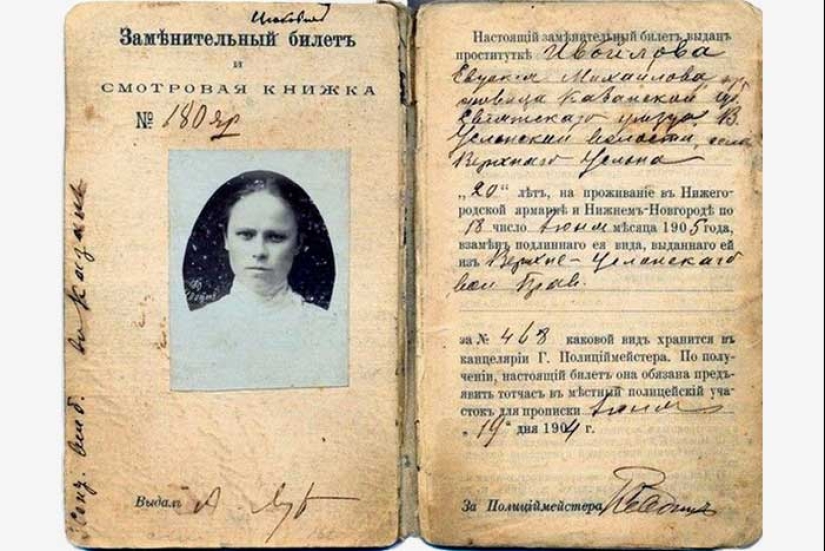 Замѣнительный билетъ
и
СМОТРОВАЯ КНИЖКА
№ 180 яр
Выдалъ
Настоящій замѣнительный билетъ выданъ
проституткѣ Ивойлова
Михайлова
Казанской губ.
уѣзда В.
Услонской волости, села
Верхняго Услона
„20“ лѣтъ, на проживаніе въ Нижего-
родской ярмаркѣ и Нижнемъ-Новгородѣ по
18 число мѣсяца 1905 года,
взамѣнъ подлиннаго ея вида, выданнаго ей
изъ Верхне-Услонскаго
вол Прав.
за № 468 каковой видъ хранится въ
канцеляріи Г. Полиціймейстера. По полу-
ченіи, настоящій билетъ она обязана предъ-
явить тотчасъ въ мѣстный полицейскій уча-
стокъ для прописки
„19“ дня 1904 г.
За Полиціймейстера